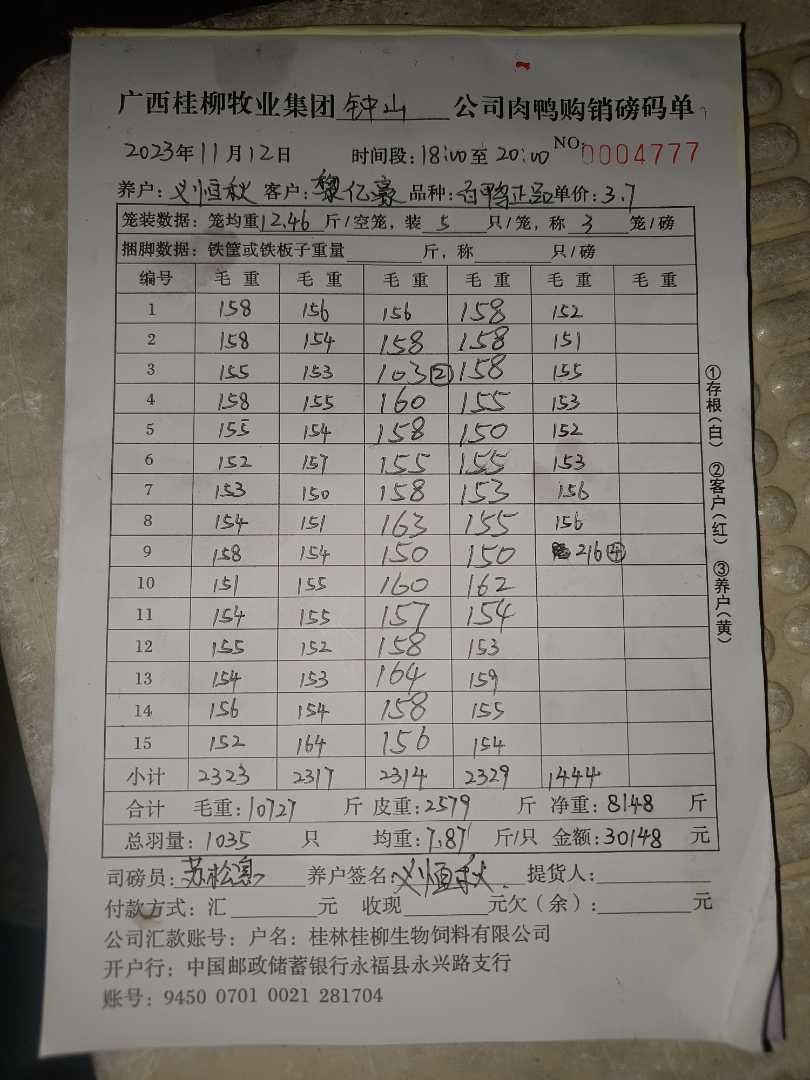 广西桂柳牧业集团钟山公司肉鸭购销磅码单
2023年11月12日 时间段:18:00至20:00 NO:0004777
养户:刘恒秋 客户:黎亿豪 品种:白鸭正品 单价:3.7
笼装数据:笼均重12.46斤/空笼,装5只/笼,称3笼/磅
捆脚数据:铁筐或铁板子重量 斤,称 只/磅
编号 毛重 毛重 毛重 毛重 毛重 毛重
1 158 156 156 158 152
2 158 154 158 158 151
3 155 153 103② 158 155
4 158 155 160 155 153
5 155 154 158 150 152
6 152 157 155 155 153
7 153 150 158 153 156
8 154 151 163 155 156
9 158 154 150 150 216④
10 151 155 160 162
11 154 155 157 154
12 155 152 158 153
13 154 153 164 159
14 156 154 158 155
15 152 164 156 154
小计 2323 2317 2314 2329 1444
合计 毛重:10727斤 皮重:2579斤 净重:8148斤
总羽量:1035只 均重:7.87斤/只 金额:30148元
司磅员:苏松 养户签名:刘恒秋 提货人:
付款方式:汇 元 收现 元欠(余): 元
公司汇款账号:户名:桂林桂柳生物饲料有限公司
开户行:中国邮政储蓄银行永福县永兴路支行
账号:9450 0701 0021 281704
①存根(白) ②客户(红) ③养户(黄)